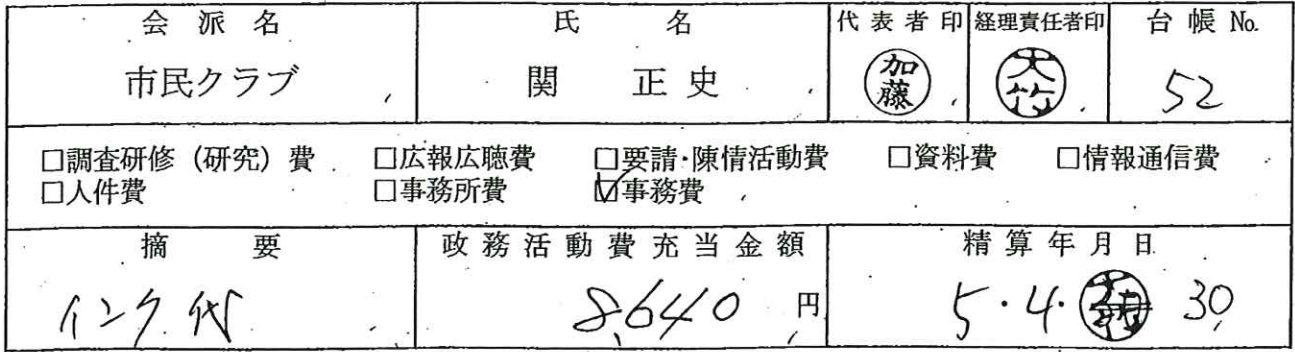 会派名 氏名 代表者印 経理責任者印 台帳 No.
市民クラブ 関 正史 加藤 大竹 52
□調査研修（研究）費 □広報広聴費 □要請・陳情活動費 □資料費 □情報通信費
□人件費 □事務所費 ☑事務費
摘要 政務活動費充当金額 精算年月日
インク代 8,640 円 5・4・ 30